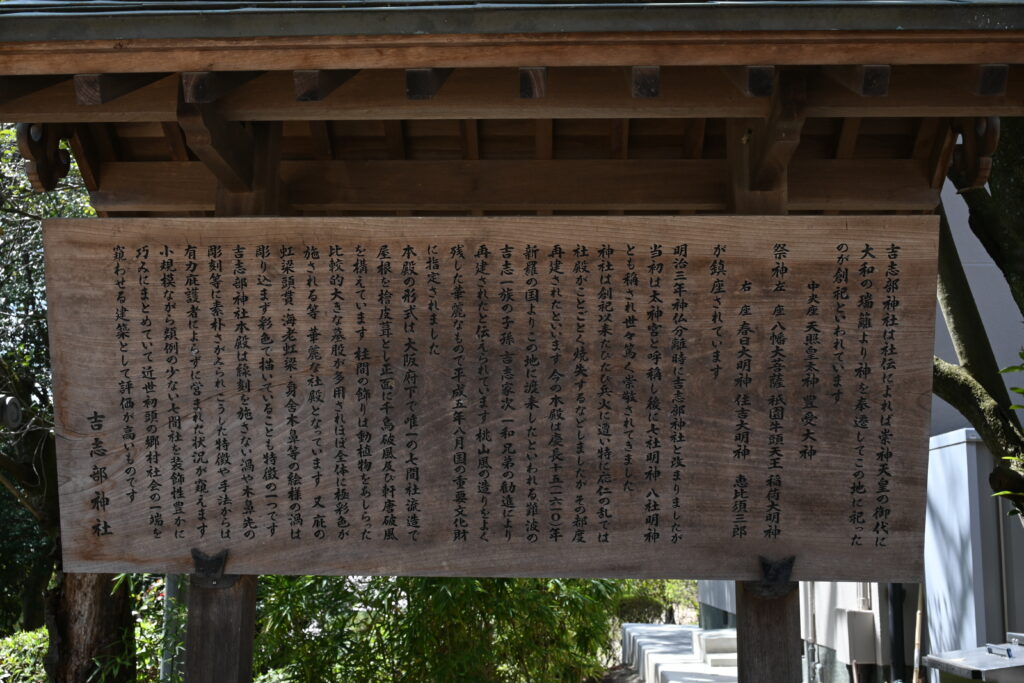 吉志部神社は社伝によれば崇神天皇の御代に
大和の瑞籬より神を奉遷してこの地に祀った
のが創祀といわれています
中央座 天照皇大神 豊受大神
祭神 左座 八幡大菩薩 祇園牛頭天王 稲荷大明神
右座 春日大明神 住吉大明神 恵比須三郎
が鎮座されています
明治三年神仏分離時に吉志部神社と改まりましたが
当初は太神宮と呼称し後に七社明神 八社明神
とも称され世々篤く崇敬されてきました
神社は創祀以来たびたび兵火に遭い特に応仁の乱では
社殿がことごとく焼失するなどしましたがその都度
再建されたといいます今の本殿は慶長十五(一六一〇)年
新羅の国よりこの地に渡来したといわれる難波の
吉志一族の子孫 吉志家次 一和兄弟の勧進により
再建されたと伝えられています 桃山風の造りをよく
残した華麗なもので平成五年八月国の重要文化財
に指定されました
本殿の形式は 大阪府下で唯一の七間社流造で
屋根を檜皮葺とし正面に千鳥破風及び軒唐破風
を構えています 柱間の飾りは動植物をあしらった
比較的大きな蟇股が多用されほぼ全体に極彩色が
施される等 華麗な社殿となっています 又 庇の
虹梁頭貫 海老虹梁 身舎木鼻等の絵様の渦は
彫り込まず彩色で描いていることも特徴の一つです
吉志部神社本殿は絵刻を施さない渦や木鼻先の
彫刻等に素朴さがみられこうした特徴や手法からは
有力庇護者によらずに営まれた状況が窺えます
小規模ながら類例の少ない七間社を装飾性豊かに
巧みにまとめていて近世初頭の郷村社会の一場を
窺わせる建築として評価が高いものです
吉志部神社